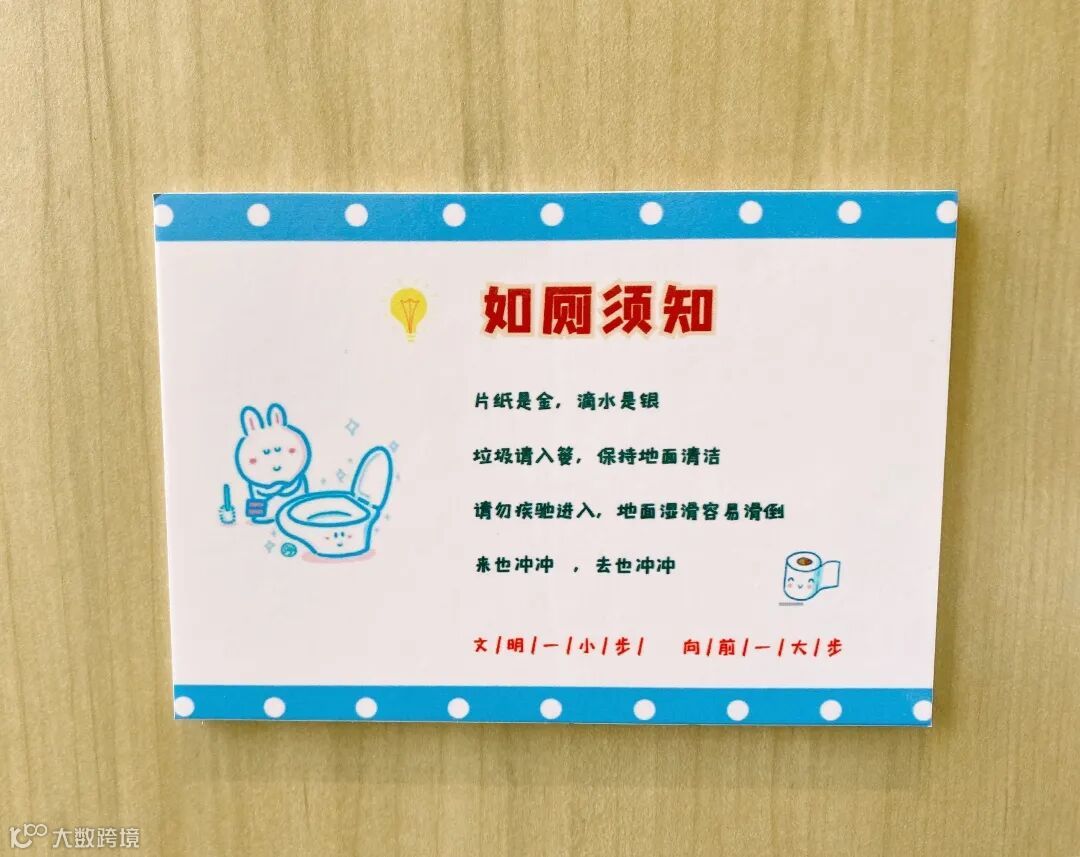 如厕须知
片纸是金，滴水是银
垃圾请入篓，保持地面清洁
请勿疾驰进入，地面湿滑容易滑倒
来也冲冲 ，去也冲冲
文/明/一/小/步/ 向/前/一/大/步
大数跨境